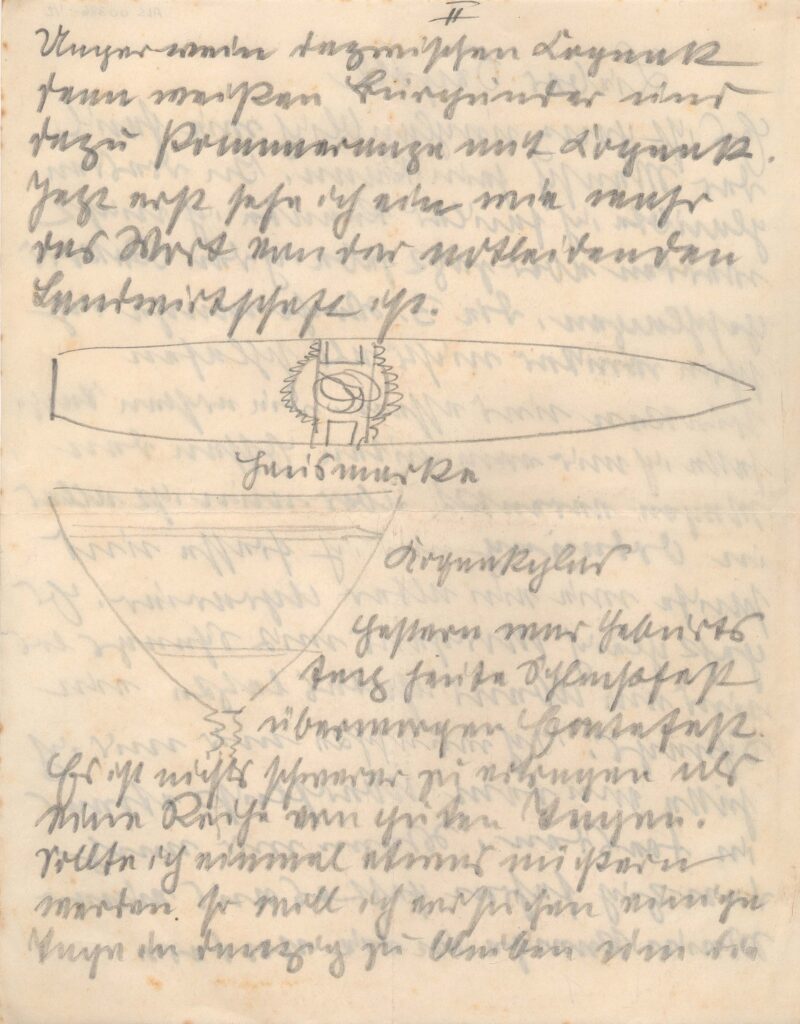 II
Ungarwein dazwischen Cognak
dann weißen Burgunder und
dazu Pommeranze mit Cognak.
Jetzt erst sehe ich ein wie wahr
das Wort von der notleidenden
Landwirtschaft ist.
Hausmarke
Cognakglas
Gestern war Geburts
tag heute Schlachtfest
übermorgen Erntefest.
Es ist nichts schwerer zu ertragen als
eine Reihe von guten Tagen.
Sollte ich einmal etwas nüchtern
werden, so will ich versuchen einige
Tage in Danzig zu bleiben um die